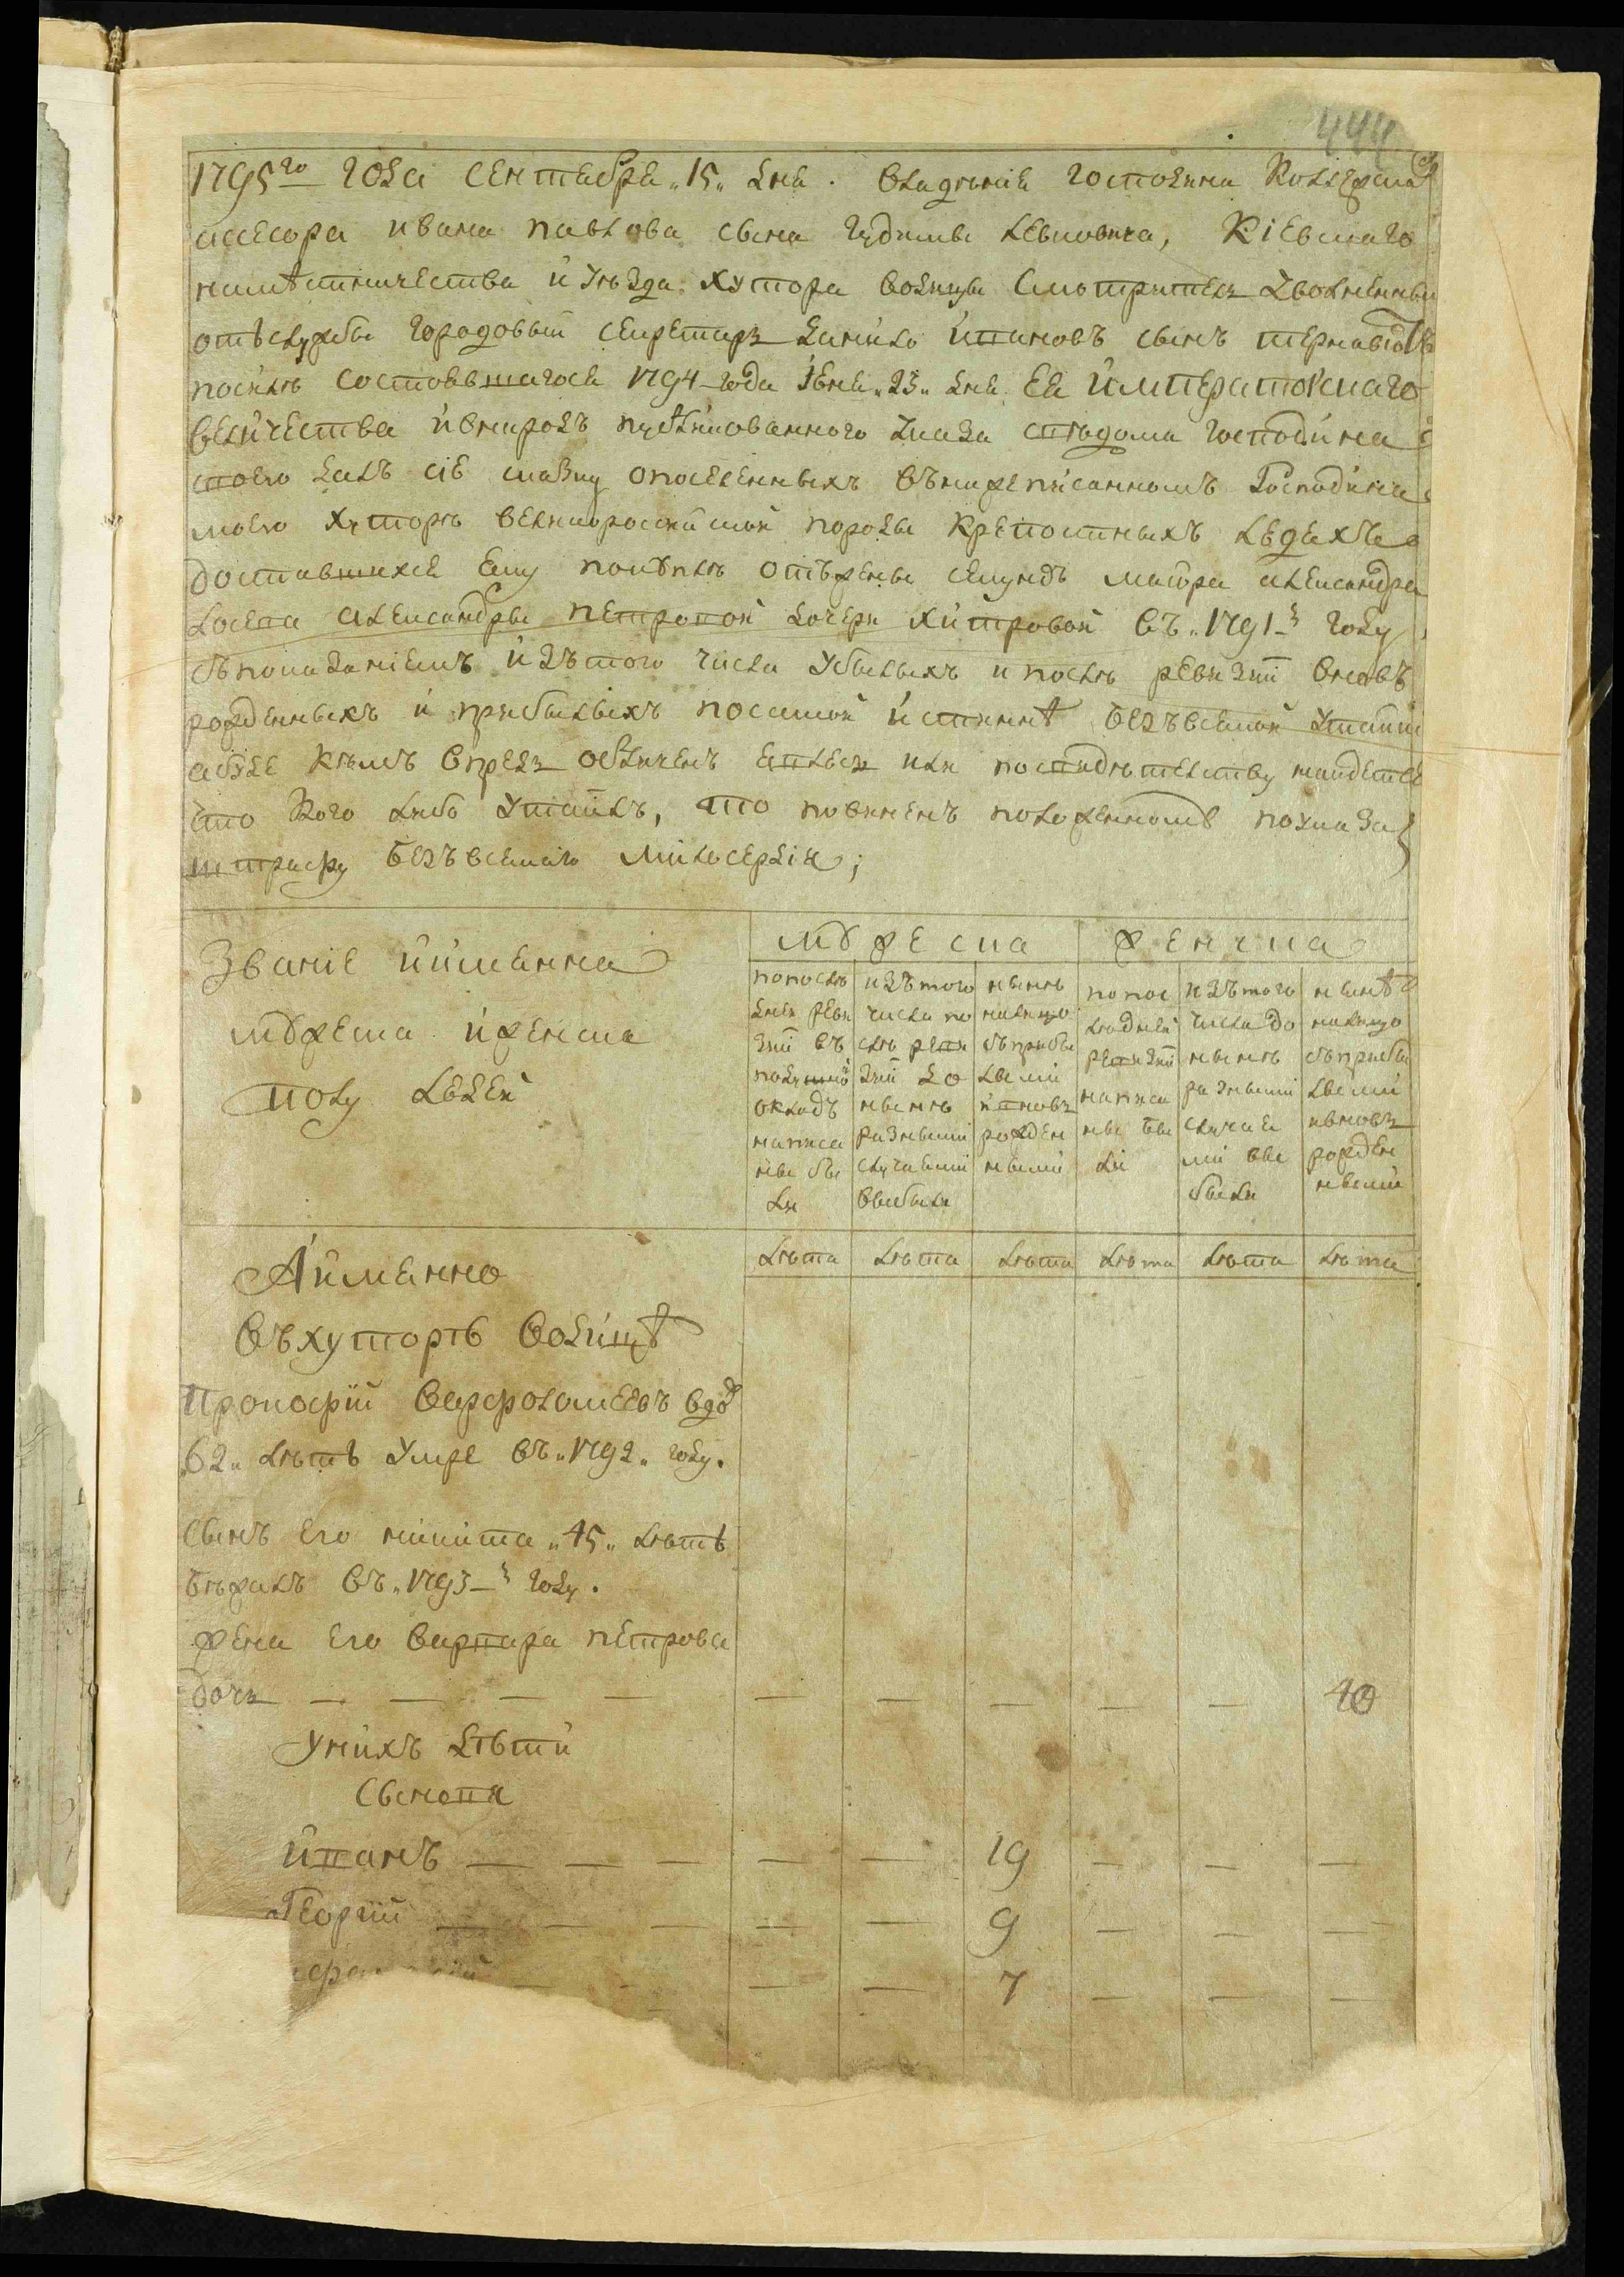 444
1795го года сентября „15„ дня. Владѣнія господина Коллежска
асесора ивана павлова сына гудимы левковича, Кіевскаго
намѣстничества и уѣзда хутора водицы смотритель уволненный
отъслужбы городовый секретарь данило ивановъ сынъ
посилѣ состоявшагося 1794 года іюня „23„ дня Ея императорскаго
величества ивнародъ публикованного указа свѣдома господина
своего далъ сію сказку опоселенныхъ въвишеписанномъ господина
моего хуторѣ великоросійской породы крепостныхъ людяхъ
доставшихся ему покупкѣ отъжены секундъ маіора александра
александры петровой дочери хитровой въ „1791м году
съпоказаніемъ изътого числа убылыхъ и послѣ ревизіи вновь
рожденныхъ и прибылыхъ посамой истиннѣ безъвсякой утайки
аежели кѣмъ впредь обличенъ явлюсь или посвидѣтелству найдется
что кого либо утаилъ, то повиненъ положенному поуказа
штрафу безъвсякаго милосердія;
Званіе иименна
мужеска иженска
полу людей
мужеска
женска
попослѣ дней реви зіи въ подушной окладъ написа ны бы ли
изътого числа по слѣ реви зіи до нынѣ разными случаями выбыли
нынѣ налицо съприбы лыми ивновь рожден ными
попос лѣдней ревизіи написа ны бы ли
изътого числа до нынѣ разными случая ми вы были
нынѣ налицо съприбы лыми ивновь рожден ными
лѣта лѣта лѣта лѣта лѣта лѣта
Аименно
въхуторѣ водицѣ
Прокофій варфоломеевъ вдов
„62„ лѣтъ умре въ „1792„ году.
сынъ его никита „45„ лѣтъ
бѣжалъ въ „1793м году.
жена его варвара петрова
дочь — — — — — — — — — 40
Унихъ дѣти
сыновя
иванъ — — — — — 19 — — —
Георгій — — — — — 9 — — —
— — — — 7 — — —